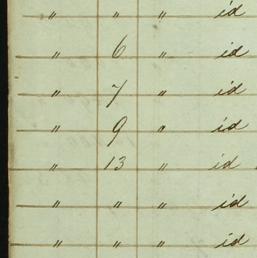 " " " id
" 6 " id
" 7 " id
" 9 " id
" 13 " id
" " " id
" " " id